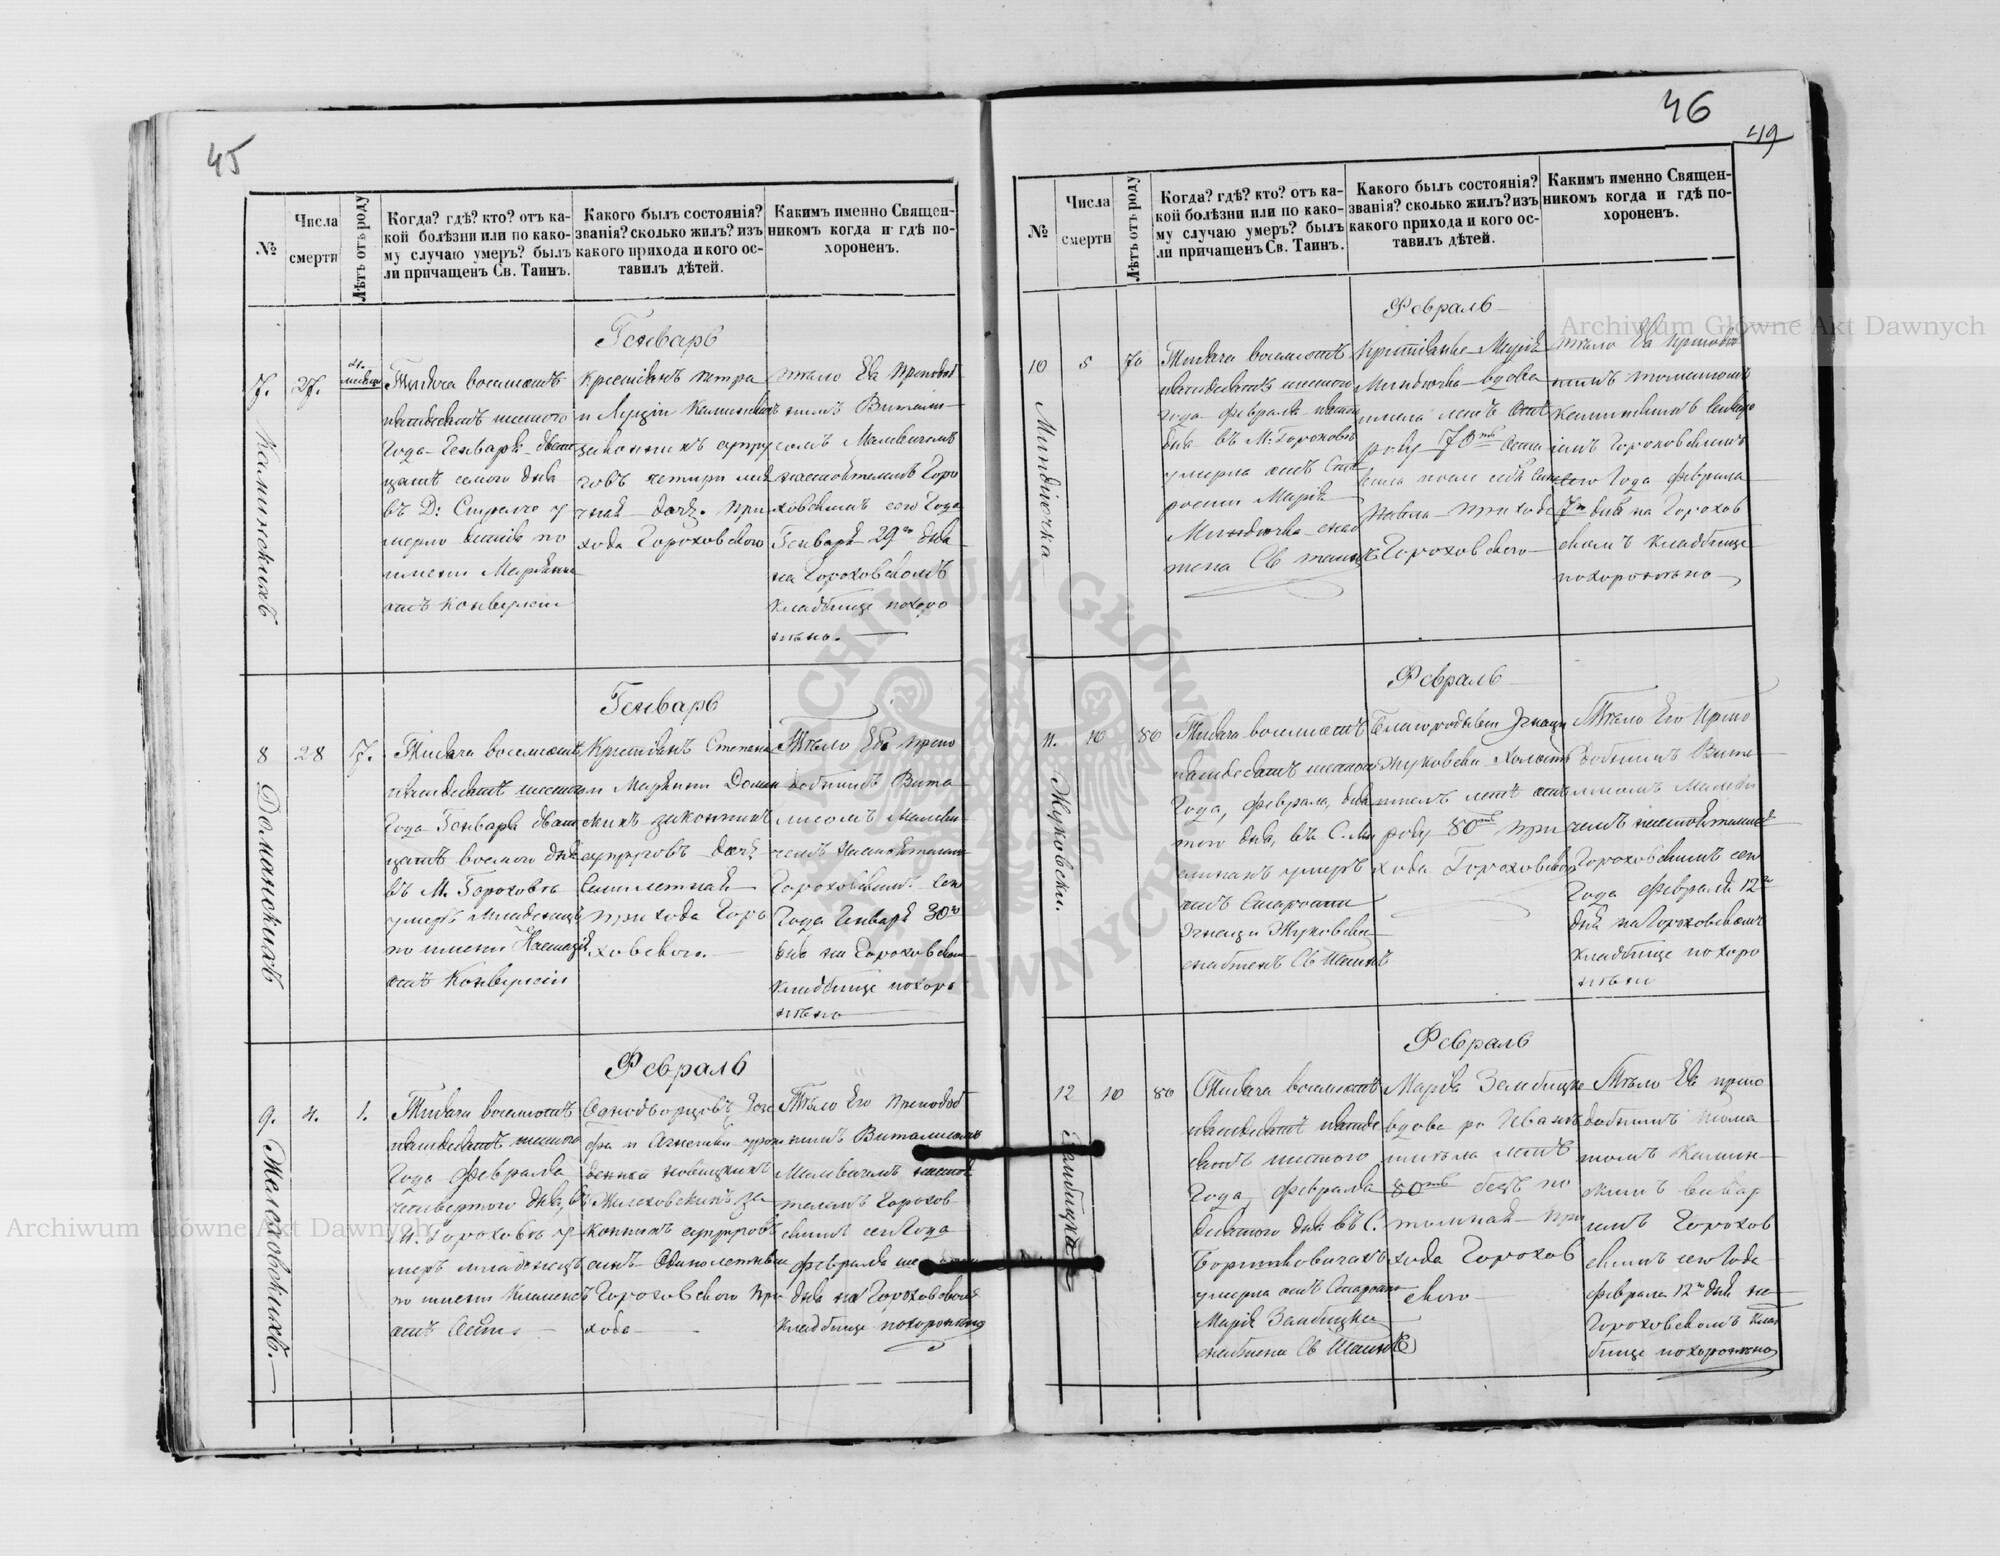 45
№
Числа
смерти
Лѣтъ отъ роду
Когда? гдѣ? кто? отъ ка-
кой болѣзни или по како-
му случаю умеръ? былъ
ли причащенъ Св. Таинъ.
Какого былъ состоянія?
званія? сколько жилъ? изъ
какого прихода и кого ос-
тавилъ дѣтей.
Какимъ именно Священ-
никомъ когда и гдѣ по-
хороненъ.
Генварь
7.
27.
Каминскихъ
Тысяча восемьсотъ
пятьдесятъ шестого
Года Генваря двад
цать седьмого дня
въ Д:
по
имени
отъ Конвульсіи
Крестьянъ Петра
и Луціи Каминскихъ
законныхъ супру
говъ четыри мѣ
дочь. При
хода Гороховского
тѣло Ея Преподоб
нымъ Витали
сомъ Малевичемъ
настоятелемъ Горо
ховскимъ сего Года
Генваря 29го дня
на Гороховскомъ
кладбище похоро
нено.
Генварь
8
28
7.
Доманскихъ
Тысяча восемьсотъ
пятьдесятъ шестого
Года Генваря двад
цать восмого дня
въ М. Гороховѣ
умеръ Младенецъ
по имени
отъ Конвульсіи
Крестьянъ Степана
и Марьяны Доман
скихъ законныхъ
супруговъ дочь
Семилетная
прихода Горо
ховского.
Тѣло Ея Препо
добнымъ Вита
лисомъ Малеви
чемъ настоятелемъ
Гороховскимъ сего
Года Генваря 30го
дня на Гороховском
кладбище похоро
нено
Февраль
9.
4.
1.
Жалеховскихъ.
Тысяча восемьсотъ
пятьдесятъ шестого
Года Февраля
четвертого дня, въ
М. Гороховѣ у
меръ младенецъ
по имени
отъ
Однодворцовъ
и Агнешки
Жалеховскихъ за
конныхъ супруговъ
сынъ Однолетный
Гороховского При
хода
Тѣло Его Преподоб
нымъ Виталисомъ
Малевичемъ настоя
телемъ Горохов
скимъ сего Года
февраля
дня на Гороховском
кладбище похоронено
46
49
№
Числа
смерти
Лѣтъ отъ роду
Когда? гдѣ? кто? отъ ка-
кой болѣзни или по како-
му случаю умеръ? былъ
ли причащенъ Св. Таинъ.
Какого былъ состоянія?
званія? сколько жилъ? изъ
какого прихода и кого ос-
тавилъ дѣтей.
Какимъ именно Священ-
никомъ когда и гдѣ по-
хороненъ.
Февраль
10
5
70
Миндючка
Тысяча восемьсотъ
пятьдесятъ шестого
Года февраля пятого
дня въ М. Гороховѣ
умерла отъ Ста
рости Марія
Миндючка снаб
жена Св таинъ
Крестьянка Марія
Миндючка вдова
имела летъ отъ
роду 70ть
после себѣ сына
Павла прихода
Гороховского
тѣло Ея Преподоб
нымъ Томашомъ
Каминскимъ викар
іемъ Гороховскимъ
сего Года февраля
7го дня на Горохов
скомъ кладбище
похоронено
Февраль
11.
10
80
Жуковски.
Тысяча восемьсотъ
пятьдесятъ шестого
Года, февраля,
того дня, въ С.
умеръ
отъ Старости
Игнацы Жуковски
снабженъ Св Таинъ
Благородный Игнацы
Жуковски холостъ
имелъ летъ отъ
роду 80ть при
хода Гороховского
Тѣло Его Препо
добнымъ Вита
лисомъ Малеви
чемъ настоятелемъ
Гороховскимъ сего
Года февраля 12го
дня на Гороховскомъ
кладбище похоро
нено
Февраль
12
10
80
Замбицка
Тысяча восемьсотъ
шестого
Года, февраля
десятого дня въ С.
Бортновичахъ
умерла отъ Старости
Марія Замбицка
снабжена Св Таинъ
Марія Замбицка
вдова по Иванѣ
имѣла летъ
80ть безъ по
томная при
хода Горохов
ского
Тѣло Ея Препо
добнымъ Тома
шомъ Камин
скимъ викар
іемъ Горохов
скимъ сего Года
февраля 12го дня на
Гороховскомъ клад
бище похоронено
Archiwum Główne Akt Dawnych
Archiwum Główne Akt Dawnych
ARCHIWUM GŁÓWNE AKT DAWNYCH